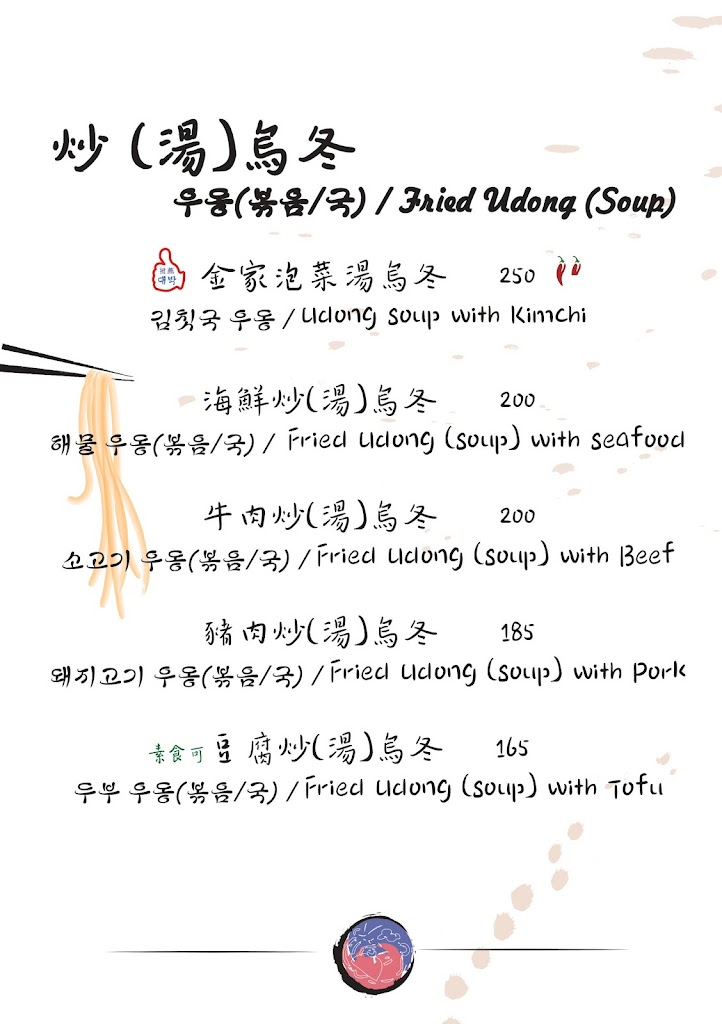 炒(湯)烏冬
우동(볶음/국) / Fried Udong (Soup)
대박
金家泡菜湯烏冬 250
김칫국 우동 / Udong soup with Kimchi
海鮮炒(湯)烏冬 200
해물 우동(볶음/국) / Fried Udong (soup) with seafood
牛肉炒(湯)烏冬 200
소고기 우동(볶음/국) / Fried Udong (soup) with Beef
豬肉炒(湯)烏冬 185
돼지고기 우동(볶음/국) / Fried Udong (soup) with Pork
素食可 豆腐炒(湯)烏冬 165
두부 우동(볶음/국) / Fried Udong (soup) with Tofu